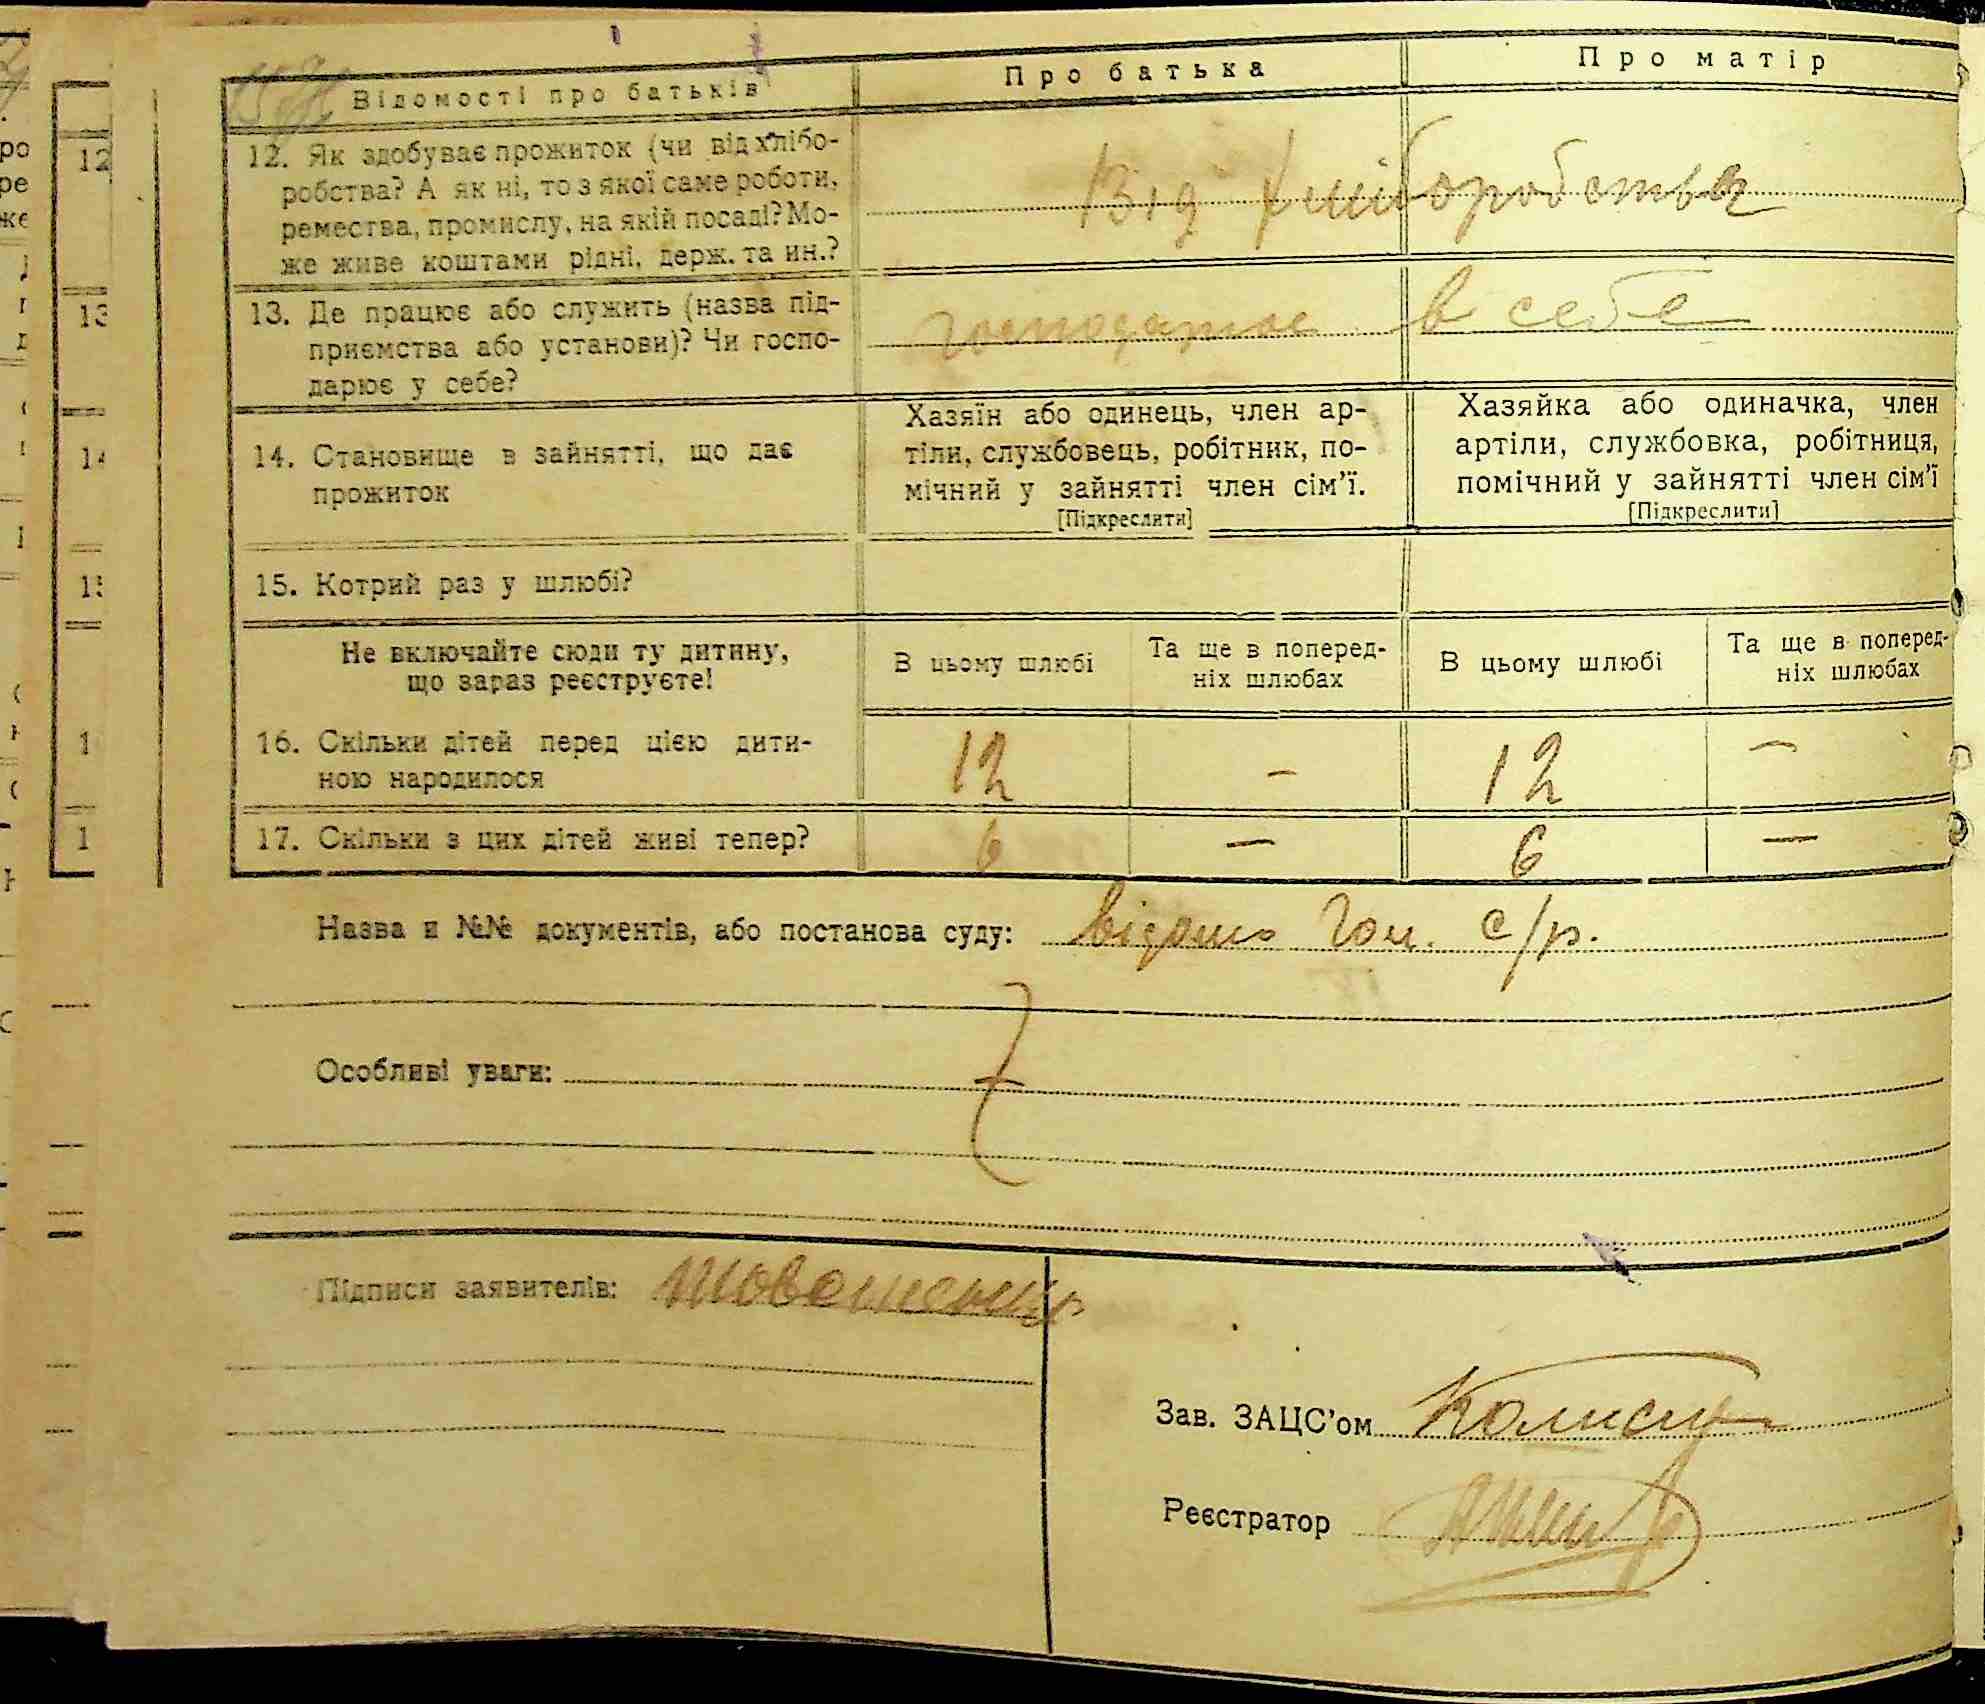 Відомості про батьків
Про батька
Про матір
12. Як здобуває прожиток (чи від хлібо-
робства? А як ні, то з якої саме роботи,
ремества, промислу, на якій посаді? Мо-
же живе коштами рідні, держ. та ин.?
Від хліборобства
13. Де працює або служить (назва під-
приємства або установи)? Чи госпо-
дарює у себе?
господарює в себе
14. Становище в зайнятті, що дає
прожиток
Хазяїн або одинець, член ар-
тіли, службовець, робітник, по-
мічний у зайнятті член сім'ї.
[Підкреслити]
Хазяйка або одиначка, член
артіли, службовка, робітниця,
помічний у зайнятті член сім'ї
[Підкреслити]
15. Котрий раз у шлюбі?
Не включайте сюди ту дитину,
що зараз реєструєте!
В цьому шлюбі
Та ще в поперед-
ніх шлюбах
В цьому шлюбі
Та ще в поперед-
ніх шлюбах
16. Скільки дітей перед цією дити-
ною народилося
12 – 12 –
17. Скільки з цих дітей живі тепер?
6 – 6 –
Назва и №№ документів, або постанова суду: відомо с/р.
Особливі уваги:
Підписи заявителів:
Зав. ЗАЦС'ом
Реєстратор
12
13
14